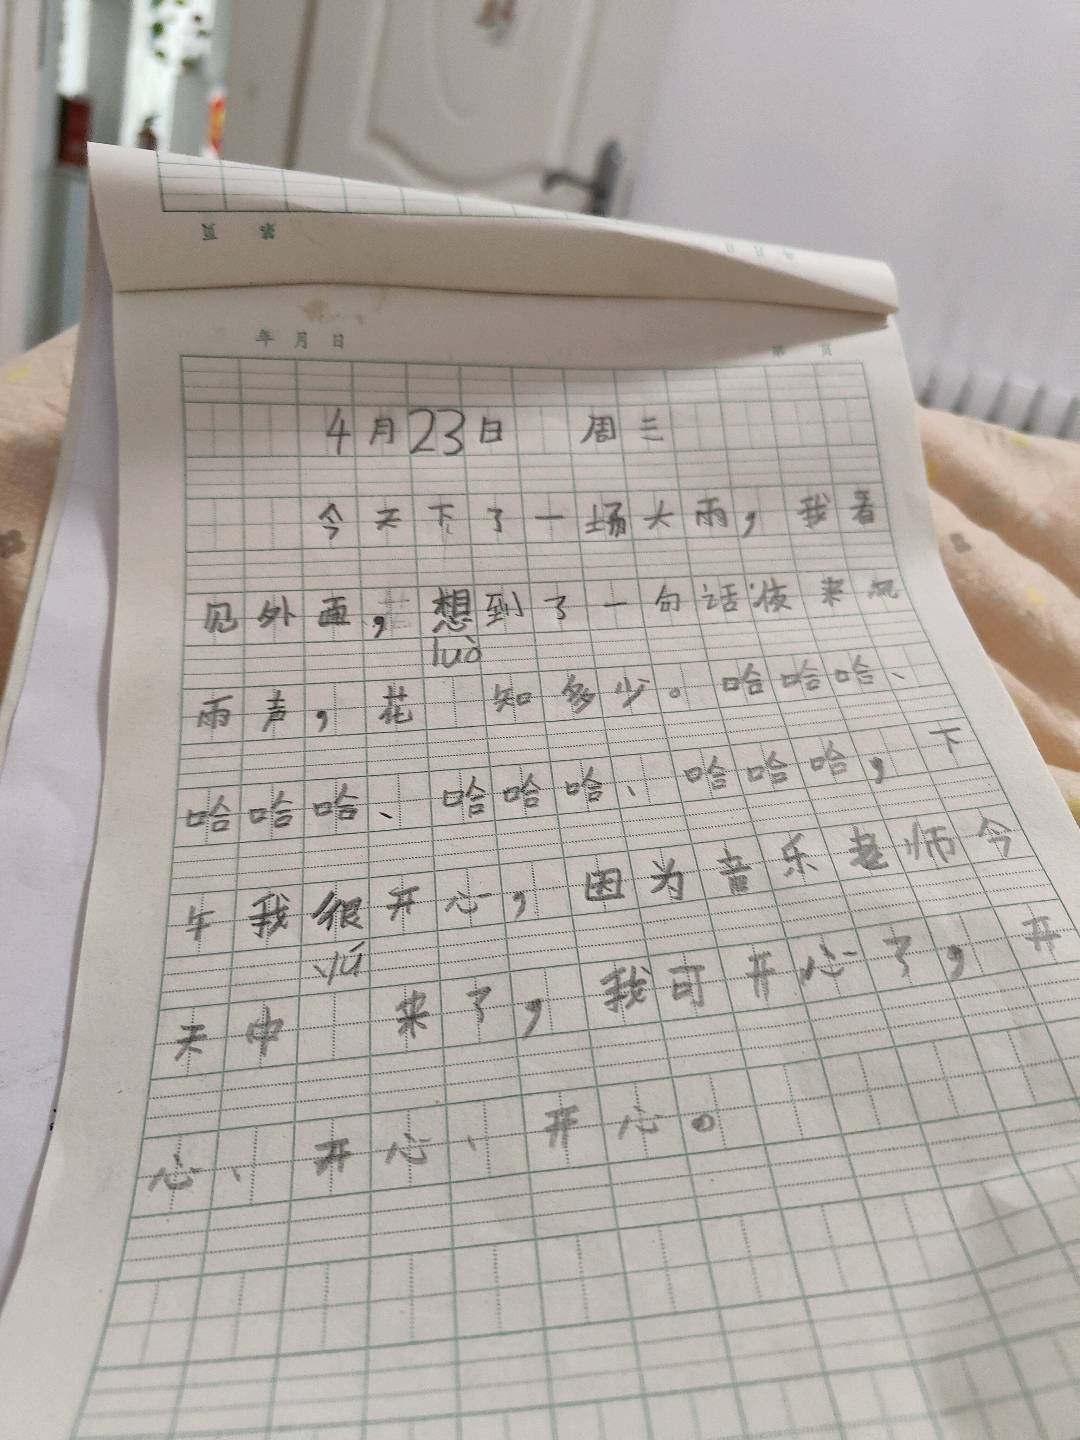 第 页
年 月 日
年 月 日 第 页
4月23日 周三
今天下了一场大雨，我看
见外面，想到了一句话夜来风
luò
雨声，花 知多少。哈哈哈、
哈哈哈、哈哈哈、哈哈哈，下
午我很开心，因为音乐老师今
yú
天中 来了，我可开心了，开
心、开心、开心。